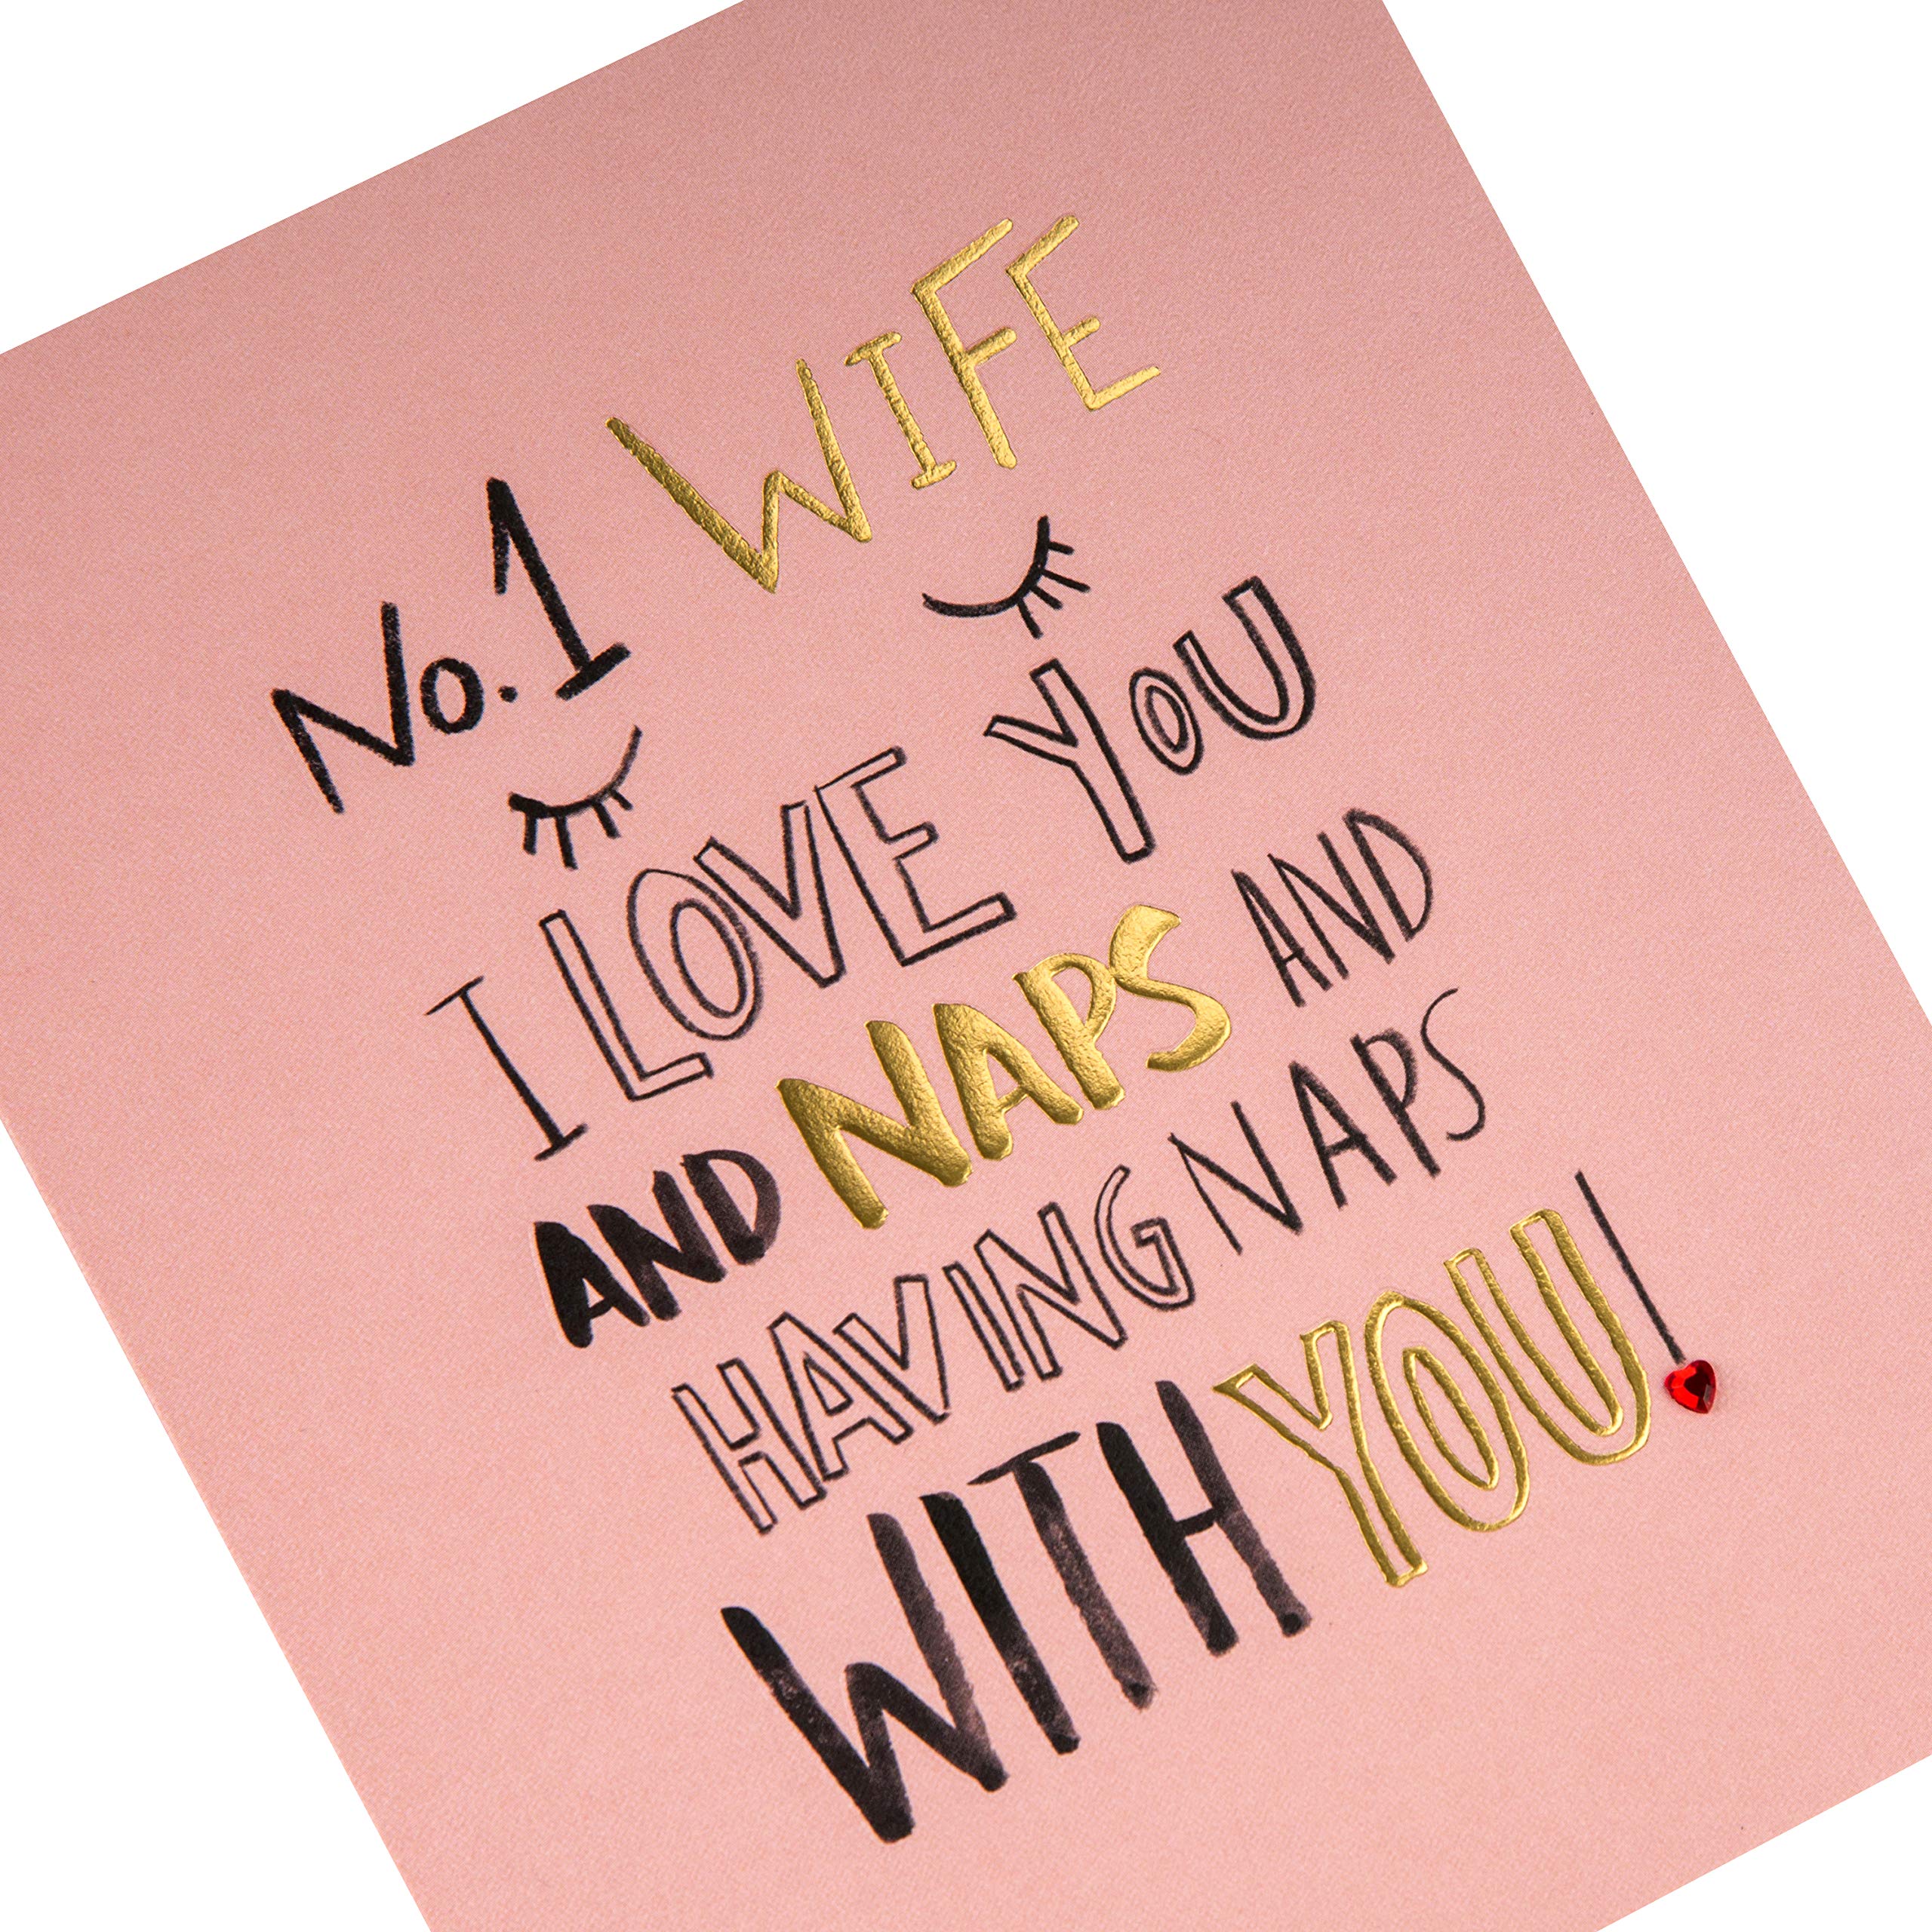 No. 1 WIFE
I LOVE YOU
AND NAPS AND
HAVING NAPS
WITH YOU!